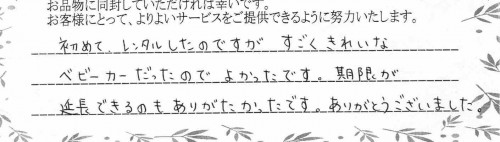 お品物に同封していただければ幸いです。
お客様にとって、よりよいサービスをご提供できるように努力いたします。
初めて、レンタルしたのですが すごくきれいな
ベビーカーだったので よかったです。期限が
延長できるのも ありがたかったです。ありがとうございました。